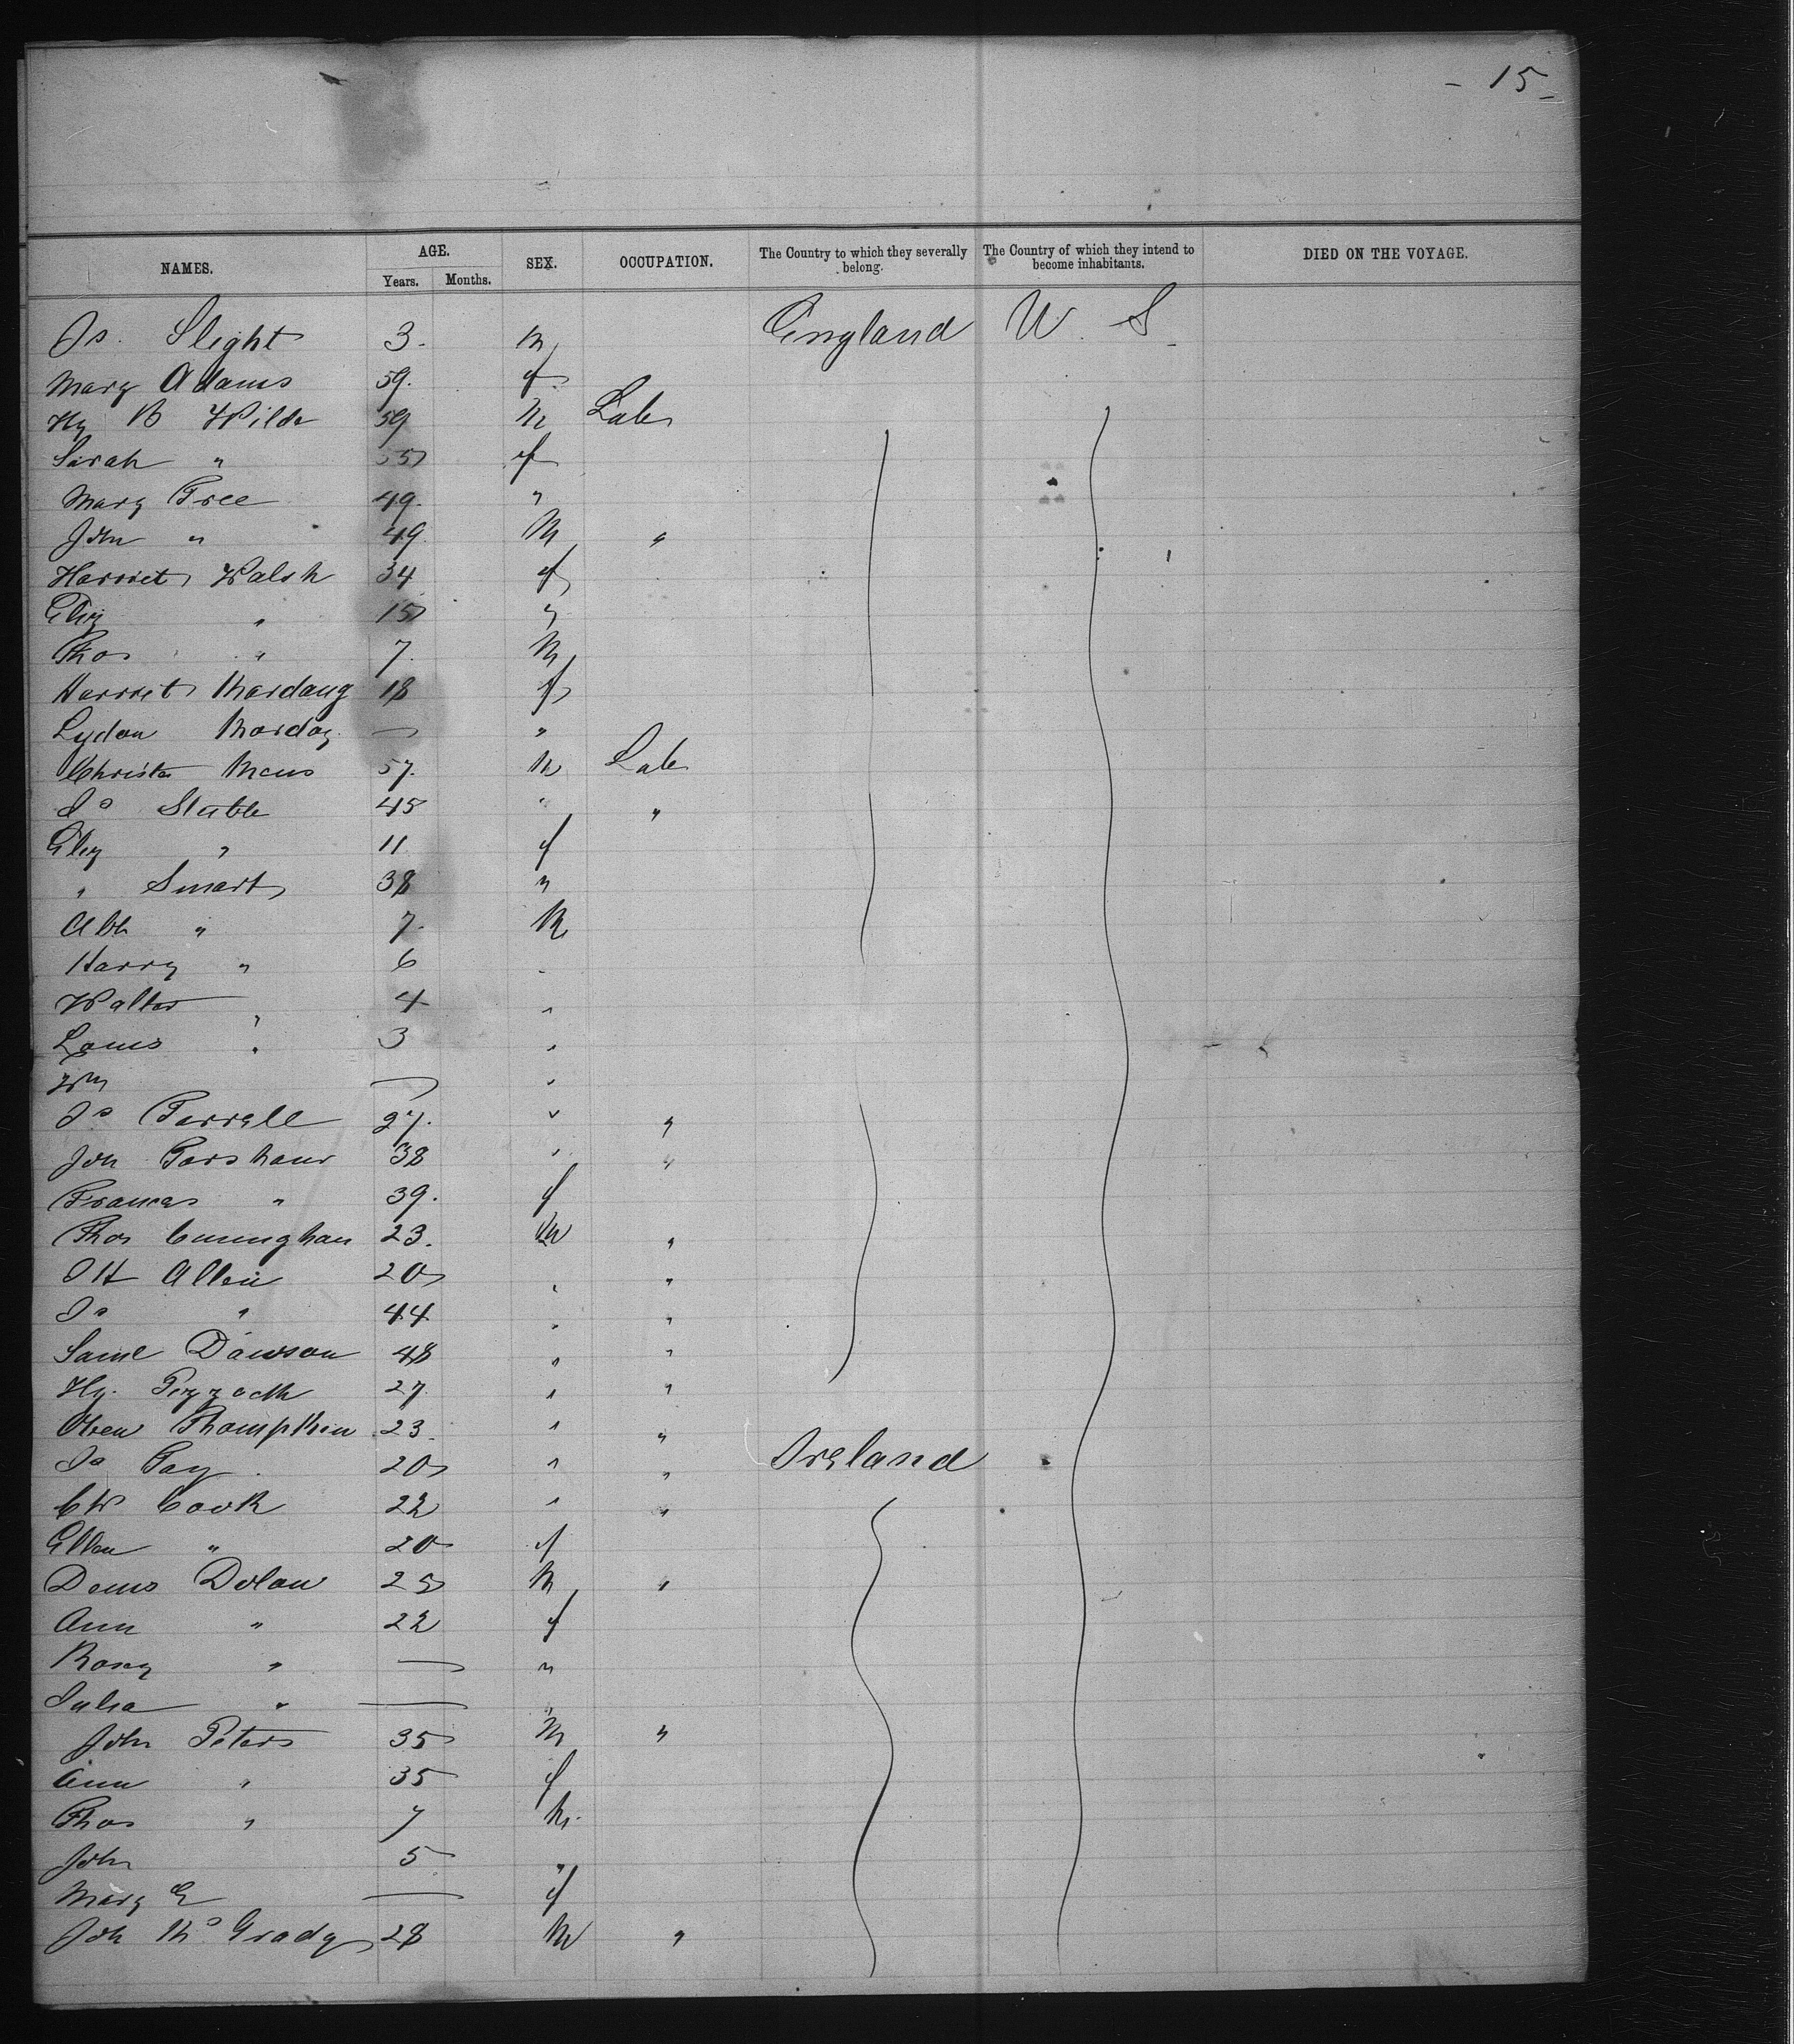 - 15 -
NAMES. AGE. SEX. OCCUPATION. The Country to which they severally belong. The Country of which they intend to become inhabitants. DIED ON THE VOYAGE.
Years. Months.
Js. Slight 3. M England U. S
Mary Adams 59. f
Hy B Wilde 59 M Lab
Sarah " 55 f
Mary Free 49. "
John " 49. M "
Harriet Walsh 34 f
Eliz " 15 "
Thos " 7. M
Harriet 18 f
Lydon — "
Christr 57. M Lab
Js Stubbs 45 " "
Eliz " 11 f
" Smart 38 "
Alb " 7. M
Harry " 6 "
Walter " 4 "
Louis " 3 "
Wm — "
Js Farrell 27. " "
Jon 38 " "
Frances " 39. f
Thos Cuninghan 23. M "
J H Allen 20 " "
Js " 44 " "
Saml Dawson 48 " "
Hy. 27. " "
Owen 23. " "
Js 20 " " Ireland
Cook 22 " "
Ellen " 20 f
Denis Dolan 25 M "
Ann " 22 f
Rosey " — "
Julia " — "
John Peters 35 M "
Ann " 35 f
Thos " 7 M
John 5 "
Mary E — f
Joh McGrady 28 M "